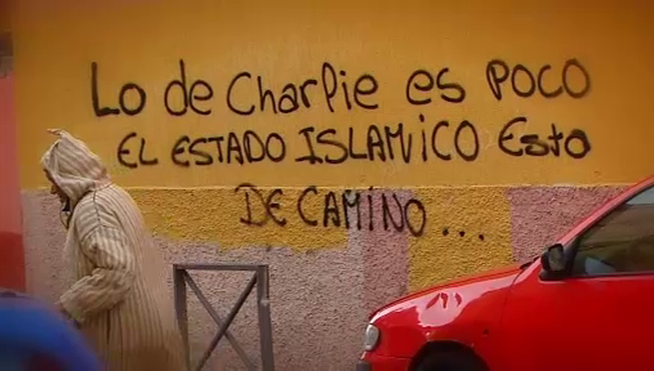 Lo de Charlie es POCO
EL ESTADO ISLAMiCO Esta
DE CAMINO...